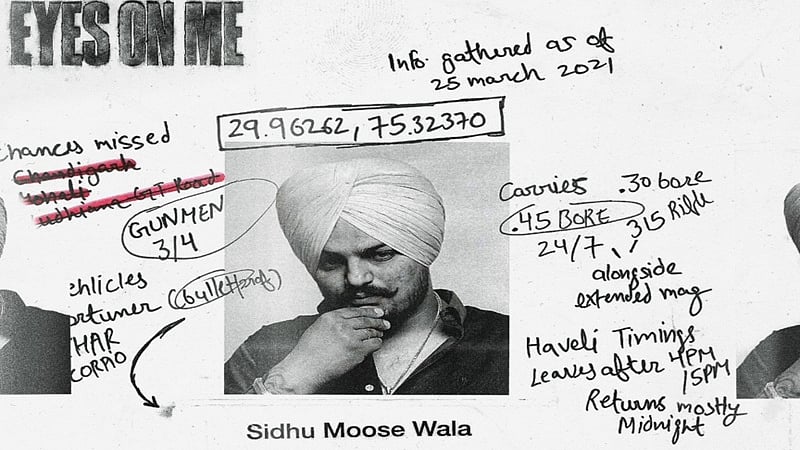 EYES ON ME
Info. gathered as of
25 march 2021
29.96262, 75.32370
Chances missed
Chandigarh
Mohali
udhiana GT Road
GUNMEN
3/4
ehlicles
ortuner (bulletProf)
HAR
CORPIO
Carries .30 bore
.45 BORE 315 Rifle
24/7
alongside
extended mag
Haveli Timings
Leaves after 4PM
/5PM
Returns mostly
Midnight
Sidhu Moose Wala